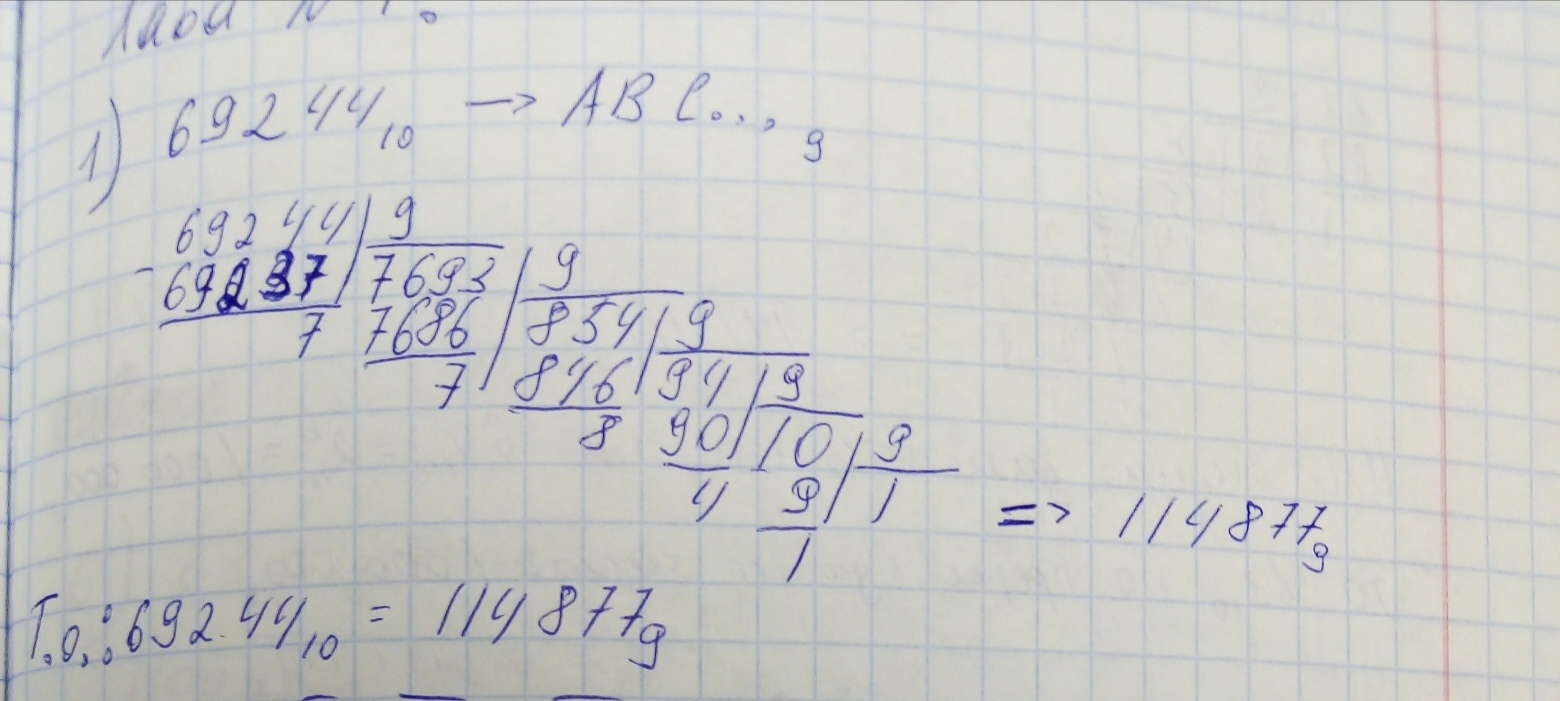 1) 69244₁₀ → ABC...₉
69244 | 9
- 69237 | 7693 | 9
7 7686 | 854 | 9
7 846 | 94 | 9
8 90 | 10 | 9
4 9 | 1 => 114877₉
1
Т.о.: 69244₁₀ = 114877₉